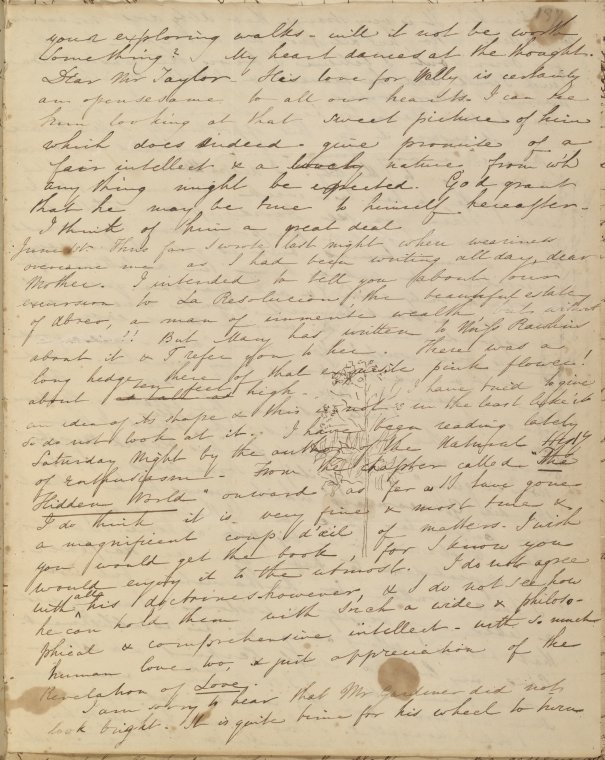 your exploring walks - will it not be worth
something? My heart dances at the thought.
Dear Mr Taylor His love for Nelly is certainly
an opensesame to all our hearts. I can see
him looking at that sweet picture of him
which does indeed give promise of a
fair intellect & a lovely nature from wh
any thing might be expected. God grant
that he may be true to himself hereafter.
I think of him a great deal
June 1st Thus far I wrote last night when weariness
overcame me as I had been writing all day, dear
Mother. I intended to tell you about our
excursion to La Resolucion the beautiful estate
of Abreo, a man of immense wealth, without
!! But Mary has written to Miss Rawlins
about it & I refer you to her. There was a
long hedge there of that exquisite pink flower!
about ten feet high. I have tried to give
an idea of its shape & this is not in the least like it
so do not look at it. I have been reading lately
Saturday Night by the author of the Natural Histy
of Enthusiasm - From the chapter called "The
Hidden World" onward as far as I have gone
I do think it is very fine & most true &
a magnificent coup d'œil of matters. I wish
you would get the book, for I know you
would enjoy it to the utmost. I do not agree
with all his doctrines however, & I do not see how
he can hold them with such a wide & philoso-
phical & comprehensive intellect - with so much
human love too, & just appreciation of the
Revelation of Love.
I am sorry to hear that Mr Gardiner did not
look bright. It is quite time for his wheel to turn